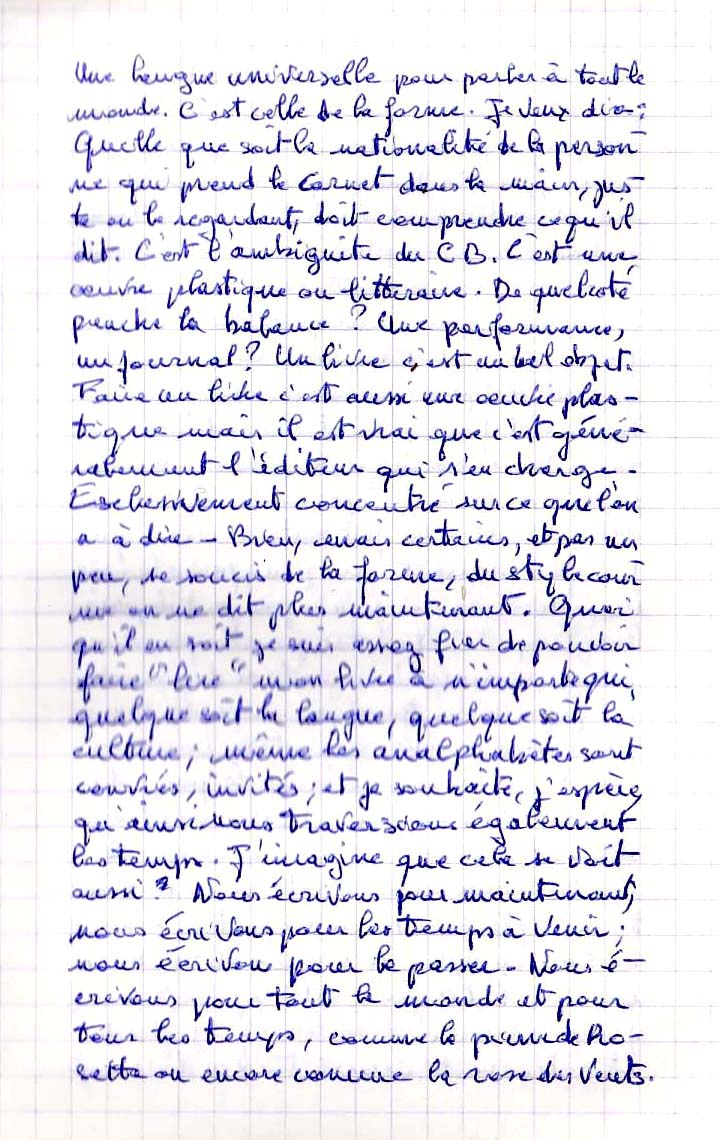 Une langue universelle pour parler à tout le
monde. C'est celle de la forme. Je veux dire:
Quelle que soit la nationalité de la person
ne qui prend le carnet dans la main, jus
te en le regardant, doit comprendre ce qu'il
dit. C'est l'ambiguité du CB. C'est une
oeuvre plastique ou litteraire. De quel coté
penche la balance ? Une performance,
un journal ? Un livre c'est un bel objet.
Faire un livre c'est aussi une oeuvre plas-
tique mais il est vrai que c'est géné-
ralement l'éditeur qui s'en charge.
Exclusivement concentré sur ce que l'on
a à dire - Bien, mais certains, et pas un
peu, se soucis de la forme, du style com
me on ne dit plus maintenant. Quoi
qu'il en soit je suis assez fier de pouvoir
faire "lire" mon livre à n'importe qui,
quelque soit la langue, quelque soit la
culture ; même les analphabètes sont
conviés, invités ; et je souhaite, j'espère,
qu'ainsi nous traversions également
les temps. J'imagine que cela se voit
aussi ? Nous écrivons pour maintenant,
nous écrivons pour les temps à venir ;
nous écrivon pour le passer - Nous é-
crivons pour tout le monde et pour
tous les temps, comme la pierre de Ro-
setta ou encore comme la rose des Vents.